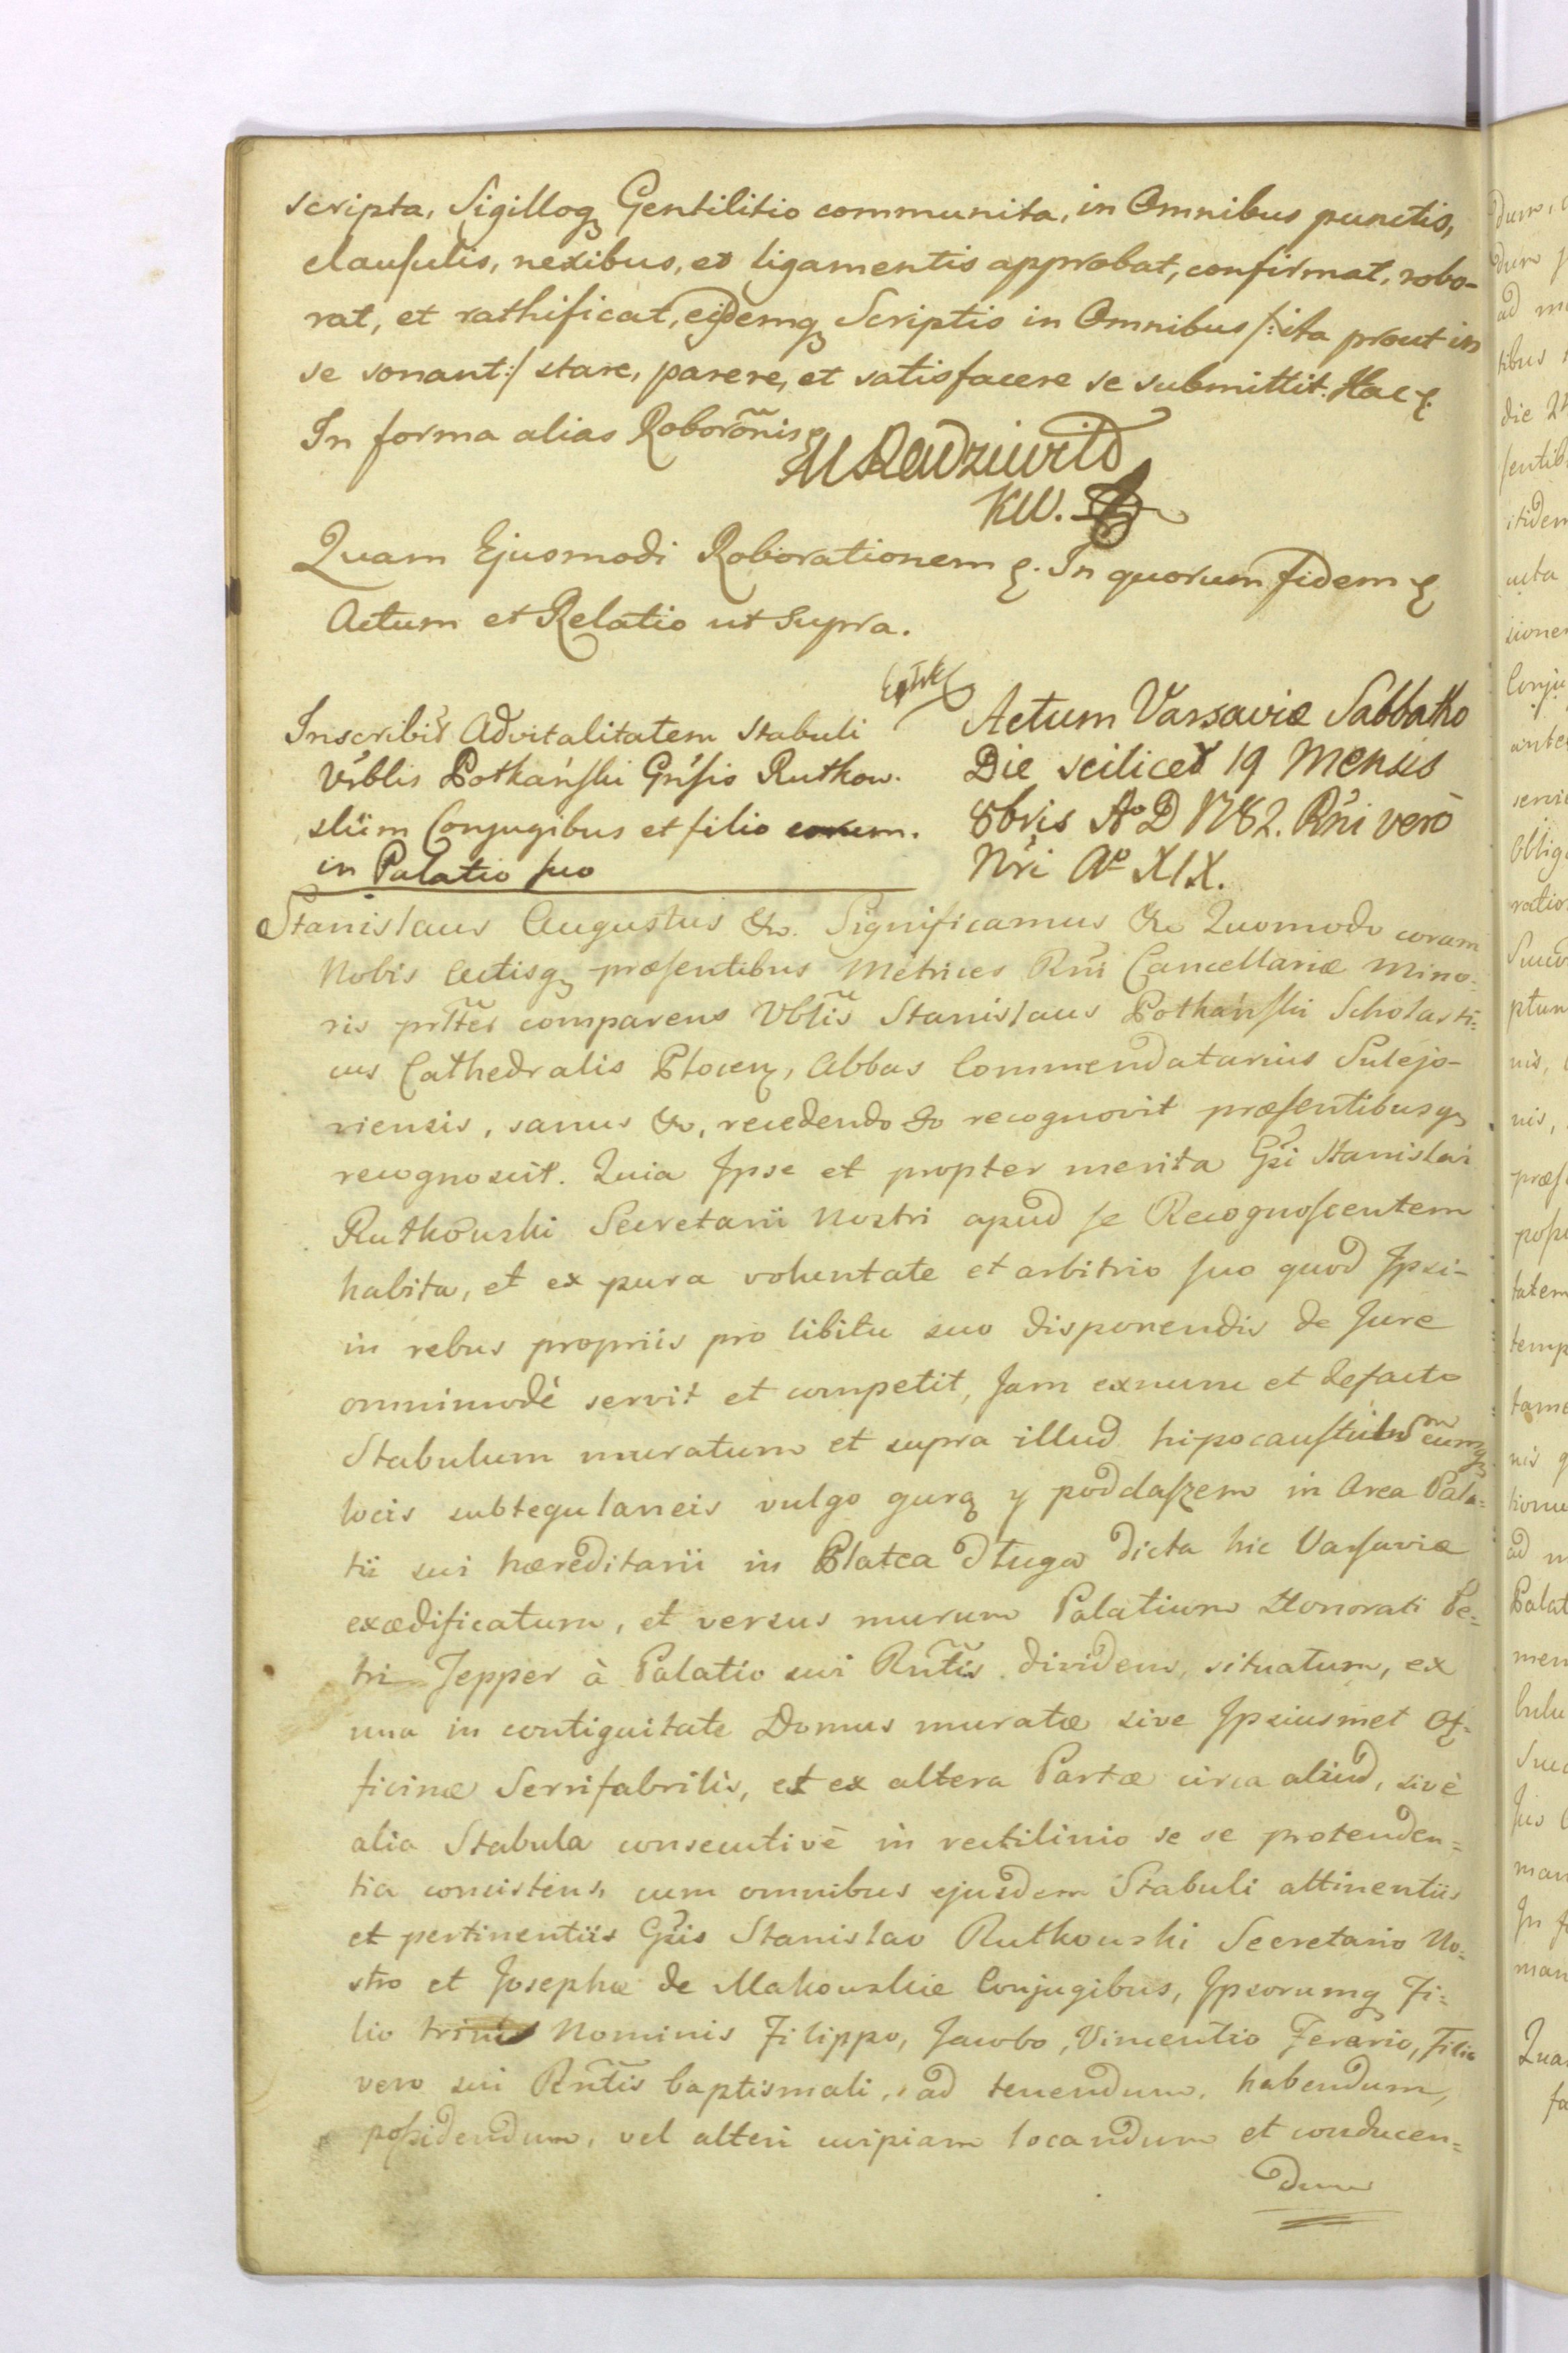 scripta, Sigilloq, Gentilitio communita, in Omnibus punctis,
clausulis, nexibus, et ligamentis approbat, confirmat, robo-
rat, et rathificat, eisdemq, Scriptis in Omnibus /: ita prout in
se sonant :/ stare, parere, et satisfacere se submittit. Hac
In forma alias Roborõnis
MRadziwiłł
KW.
Quam Ejusmodi Roborationem. In quorum fidem
Actum et Relatio ut Supra.
Inscribit Advitalitatem Stabuli
Vrblis Potkański Gnſis Rutkow-
skim Conjugibus et filio eorum.
in Palatio suo
Actum Varsaviæ Sabbatho
Die scilicet 19 Mensis
8bris Aº D 1782. Rni verò
Nri Aº XIX.
Stanislaus Augustus &c. Significamus &c Quomodo coram
Nobis Actisq, præsentibus Metrices Rni Cancellariæ Mino-
ris prſtter comparens Vblis Stanislaus Potkański Scholasti-
cus Cathedralis Plocen, Abbas Commendatarius Sulejo-
viensis, sanus &c, recedendo &c recognovit præsentibusq,
recognoscit. Quia Ipse et propter merita Gsi Stanislai
Rutkowski Secretarii Nostri apud se Recognoscentem
habita, et ex pura voluntate et arbitrio suo quod Ipsi-
in rebus propriis pro libitu suo disponendis de Jure
omnimodè servit et competit, Jam exnunc et defacto
Stabulum muratum et supra illud hipocaustulum cumq,
locis subtegulaneis vulgo gurą y poddaszem in Area Pala-
tii sui hæreditarii in Platea Długa dicta hic Varsaviæ
exædificatum, et versus murum Palatium Honorati Pe-
tri Tepper à Palatio sui Rñtis dividens, situatum, ex
una in contiguitate Domus muratæ sive Ipsiusmet Of-
ficinæ Serrifabrilis, et ex altera Partæ circa aliud, sivè
alia Stabula consecutivè in rectilinio se se protenden-
tia consistens, cum omnibus ejusdem Stabuli attinentiis
et pertinentiis Gsis Stanislao Rutkowski Secretario No-
stro et Josephæ de Makowskie Conjugibus, Ipsorumq, Fi-
lio trinis Nominis Filippo, Jacobo, Vincentio Ferario, Filio
vero sui Rñtis baptismali, ad tenendum, habendum,
possidendum, vel alteri cuipiam locandum et conducen-
dum